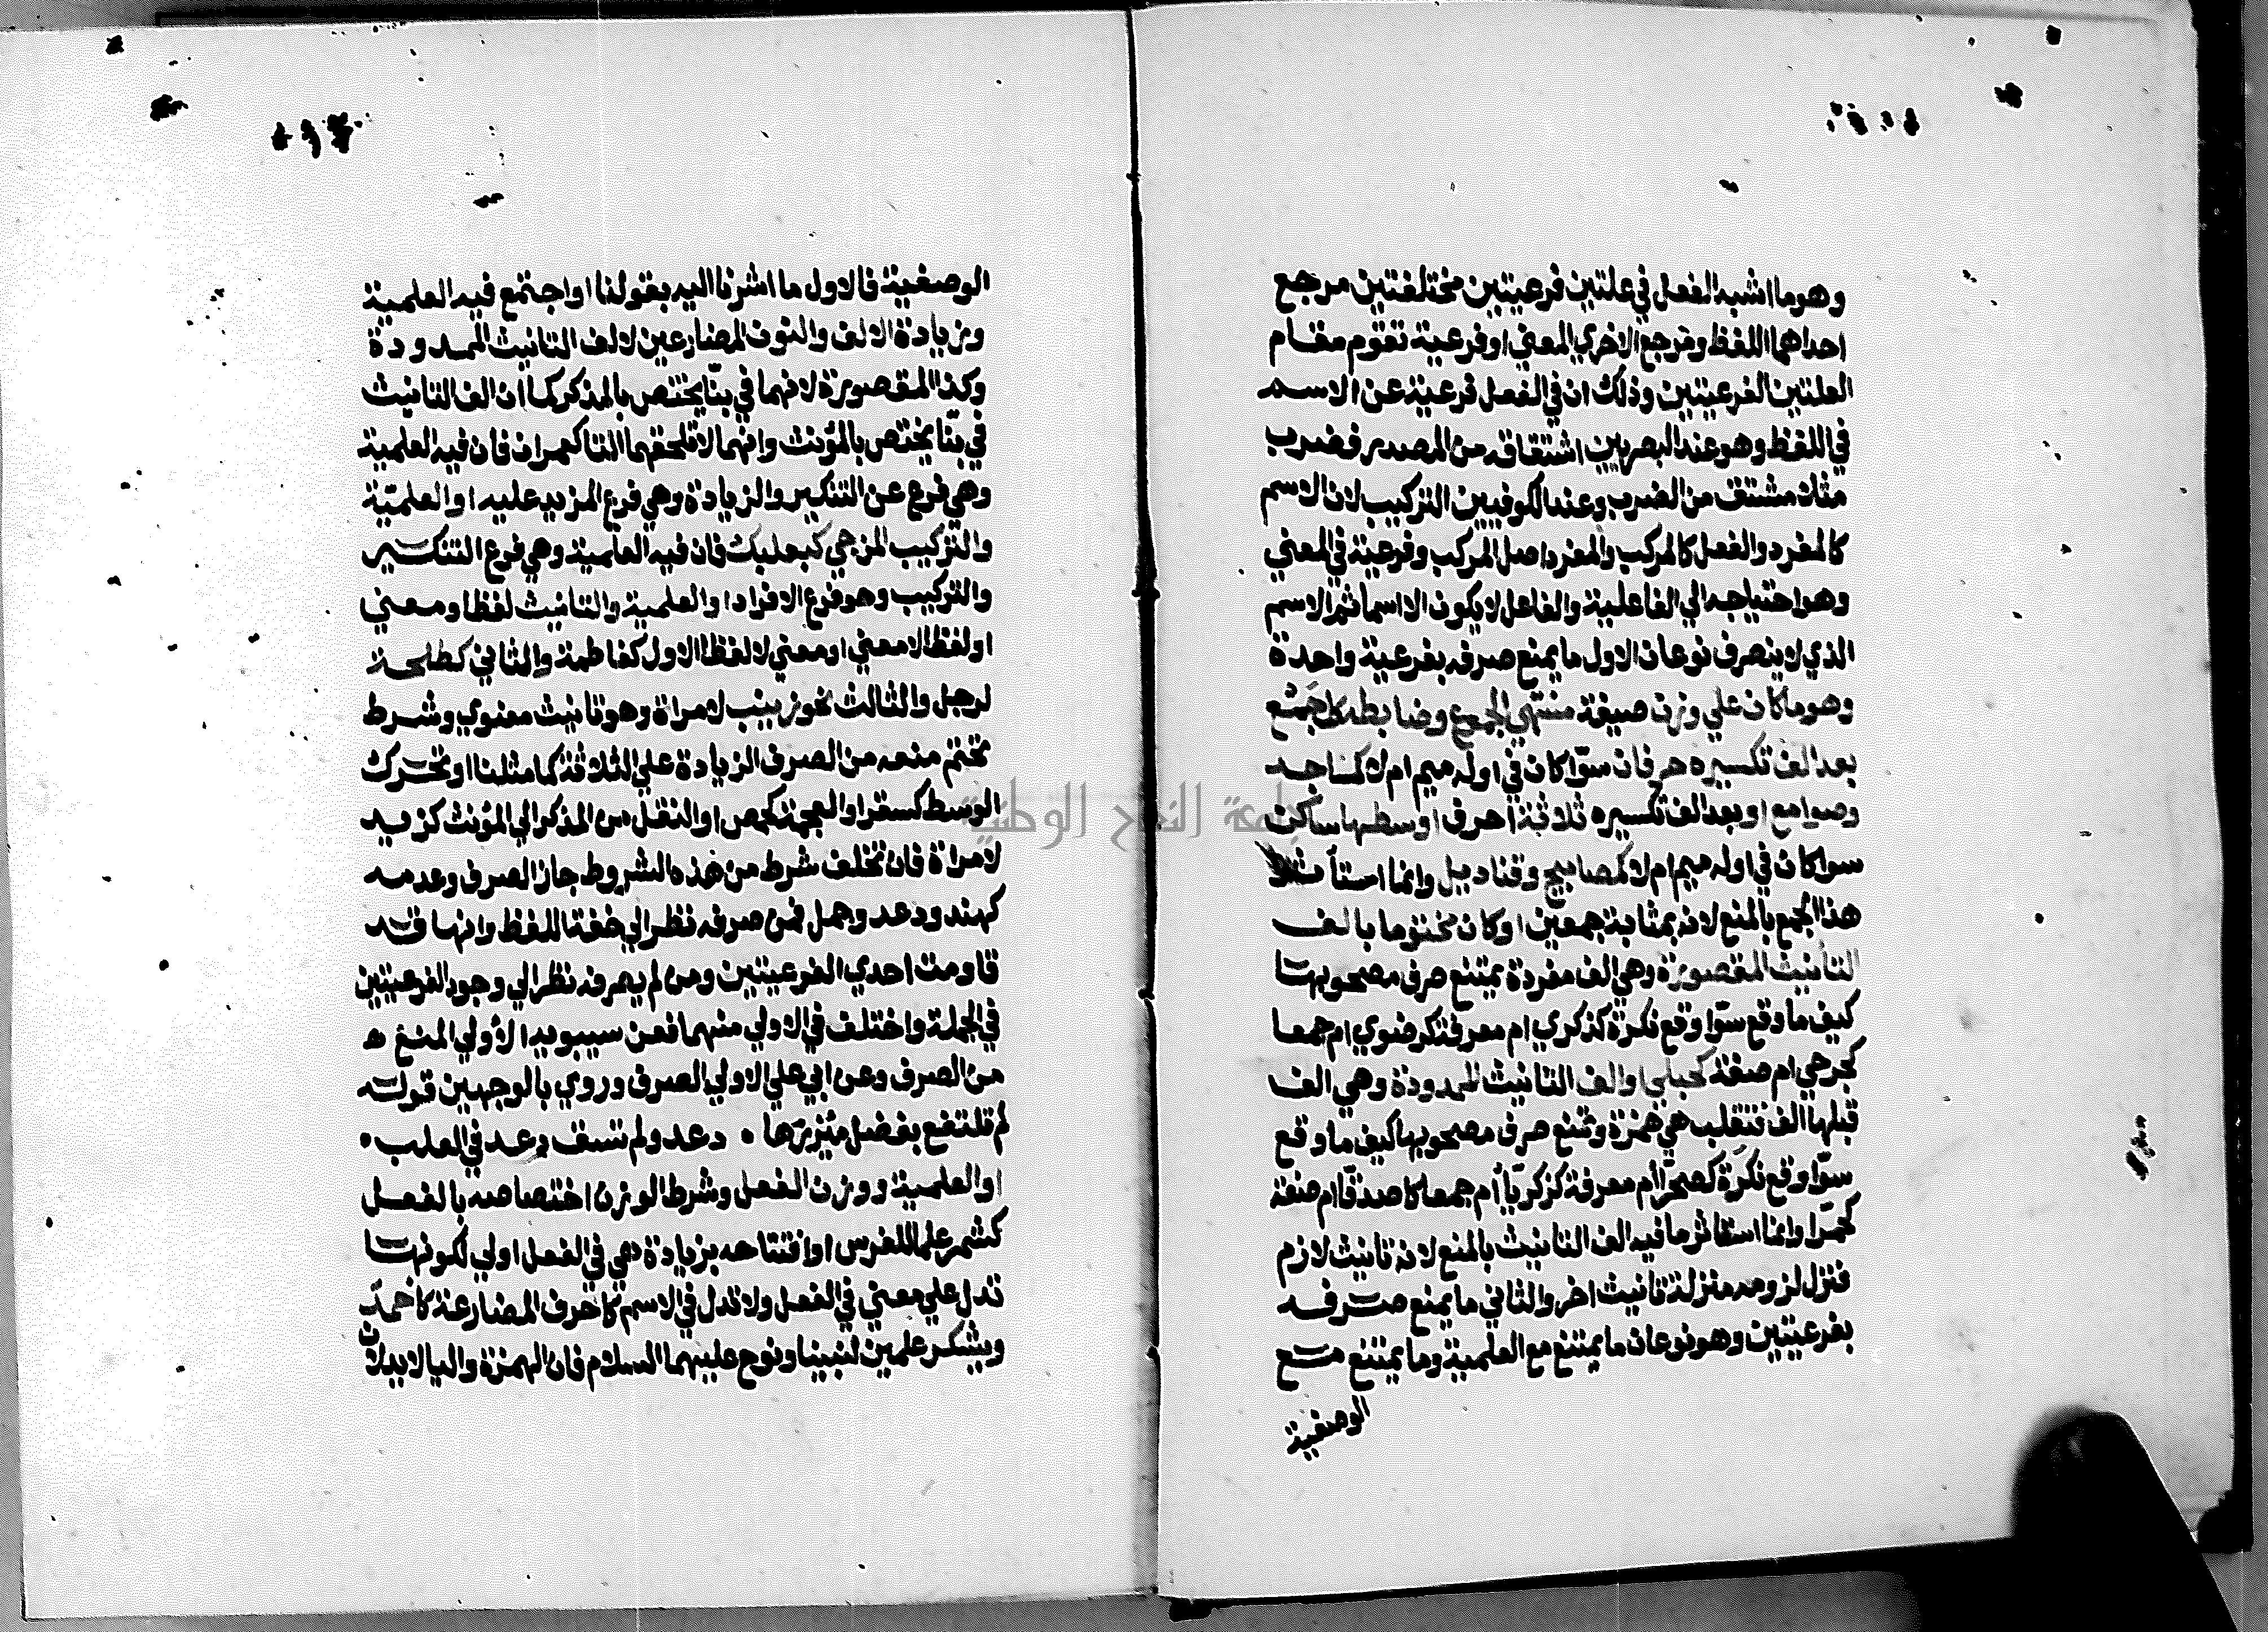 وهوما اشبه الفعل في علتين فرعيتين مختلفتين مرجع
احداهما اللفظ ومرجع الاخري المعني او فرعية تقوم مقام
العلتين الفرعيتين وذلك ان في الفعل فرعية عن الاسم
في اللفظ وهو عند البصريين اشتقاقه من المصدر فضرب
مثلا مشتق من الضرب وعند الكوفيين التركيب لان الاسم
كالمفرد والفعل كالمركب والمفرد اصل المركب وفرعية في المعني
وهو احتياجه الي الفاعلية والفاعل لا يكون الا اسما ثم الاسم
الذي لا ينصرف نوعان الاول ما يمنع صرفه بفرعية واحدة
وهو ما كان علي وزن صيغة منتهي الجموع وضابطه كل جمع
بعد الف تكسيره حرفان سوّا كان في اوله ميم ام لا كمساجد
وصوامع او بعد الف تكسيره ثلاثة احرف اوسطها ساكن
سوا كان في اوله ميم ام لا كمصابيح وقناديل وانما استأثر
هذا الجمع بالمنع لانه بمثابة جمعين او كان مختوما بالف
التأنيث المقصورة وهي الف مفردة يمتنع صرف مصحوبها
كيف ما وقع سوّا وقع نكرة كذكري ام معرفة كرضوي ام جمعا
كجرحي ام صفة كحبلي او الف التانيث الممدودة وهي الف
قبلها الف فتقلب هي همزة وتمنع صرف مصحوبها كيف ما وقع
سوّا وقع نكرة كصحرّا أم معرفة كزكريّا أم جمعا كاصدقّا ام صفة
كحمرّا وانما استاثر ما فيه الف التانيث بالمنع لانه تانيث لازم
فنزل لزومه منزلة تأنيث اخر والثاني ما يمنع صرفه
بفرعيتين وهو نوعان ما يمتنع مع العلمية وما يمتنع مع
الوصفية
الوصفية فالاول ما اشرنا اليه بقولنا او اجتمع فيه العلمية
وزيادة الالف والنون المضارعين لالف التانيث الممدودة
وكذا المقصورة لانهما في بنّا يختص بالمذكر كما ان الف التانيث
في بنّا يختص بالمؤنث وانهما لا تلحقهما التا كعمران فان فيه العلمية
وهي فرع عن التنكير والزيادة وهي فرع المزيد عليه او العلميّة
والتركيب المزجي كبعلبك فان فيه العلمية وهي فرع التنكير
والتركيب وهو فرع الافراد او العلمية والتانيث لفظا ومعني
او لفظا لا معني او معني لا لفظا الاول كفاطمة والثاني كطلحة
لرجل والثالث نحو زينب لامراة وهو تانيث معنوي وشرط
تحتم منعه من الصرف الزيادة علي الثلاثة كما مثلنا او تحرك
الوسط كسقر او العجمة كحمص او النقل من المذكر الي المؤنث كزيد
لامراة فان تخلف شرط من هذه الشروط جاز الصرف وعدمه
كهند ودعد وجمل فمن صرفه نظر الي خفة اللفظ وانها قد
قاومت احدي الفرعيتين ومن لم يصرفه نظر الي وجود الفرعيتين
في الجملة واختلف في الاولي منهما فعن سيبويه الأولي المنع
من الصرف وعن ابي علي الاولي الصرف وروي بالوجهين قوله
لم تلتفع بفضل مئزرها . دعد ولم تسق دعد في العلب .
او العلمية ووزن الفعل وشرط الوزن اختصاصه بالفعل
كشمر علما للفرس او افتتاحه بزيادة هي في الفعل اولي لكونها
تدل علي معني في الفعل ولا تدل في الاسم كاحرف المضارعة كاحمد
ويشكر علمين لنبينا ونوح عليهما السلام فان الهمزة واليا لا يدلان
جامعة النجاح الوطنية